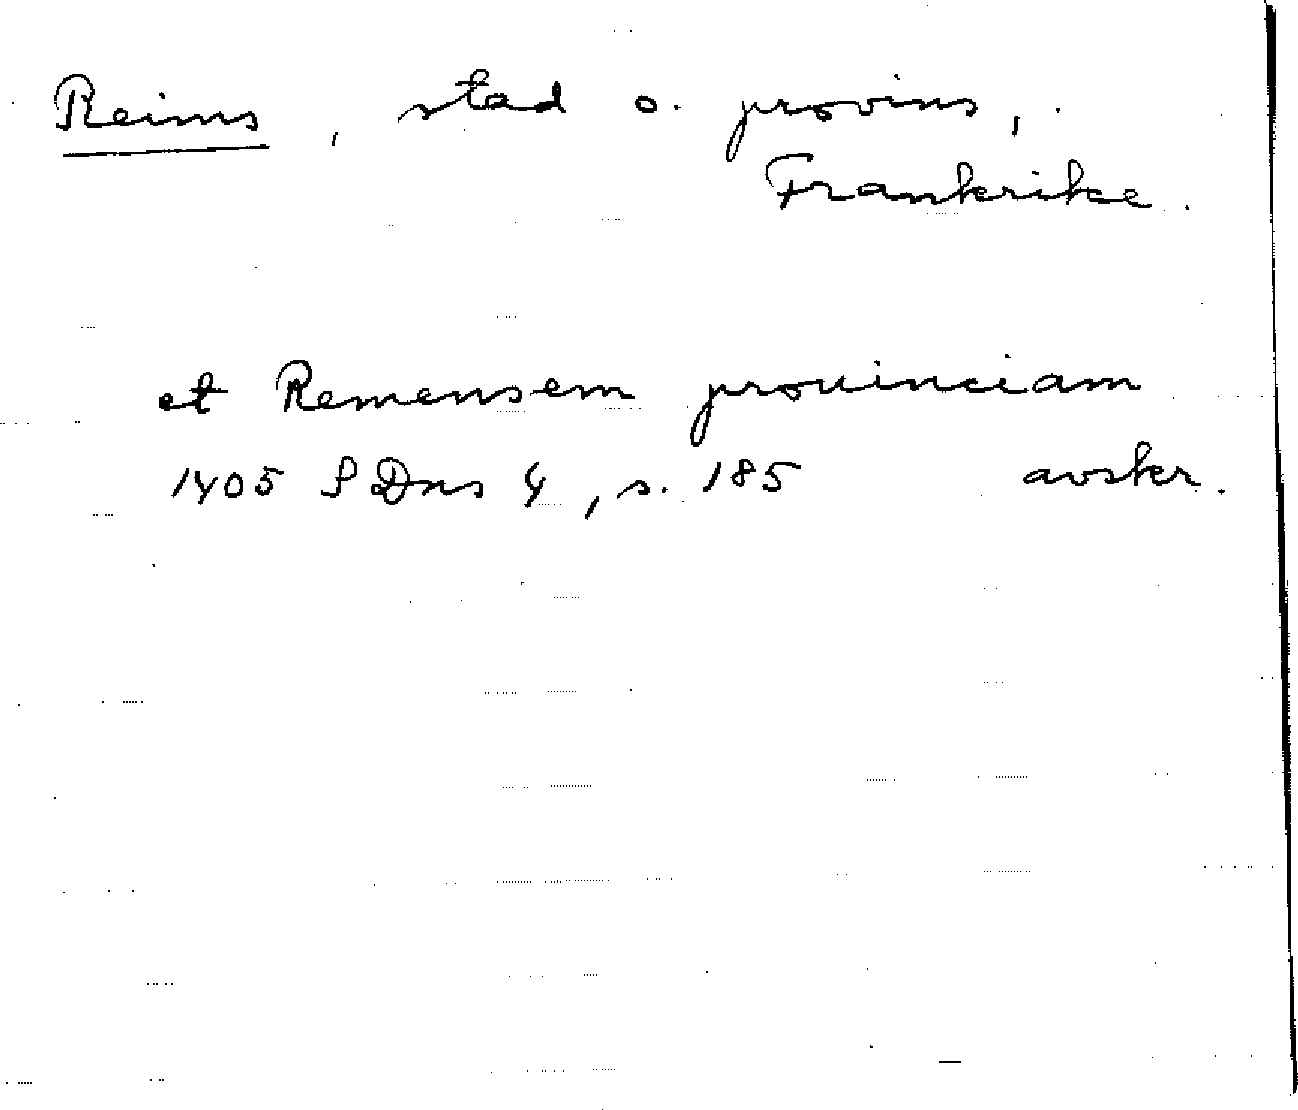 Reims, stad o. provins,
Frankrike.
et Remensem prouinciam
1405 SDns 4, s. 185 avskr.